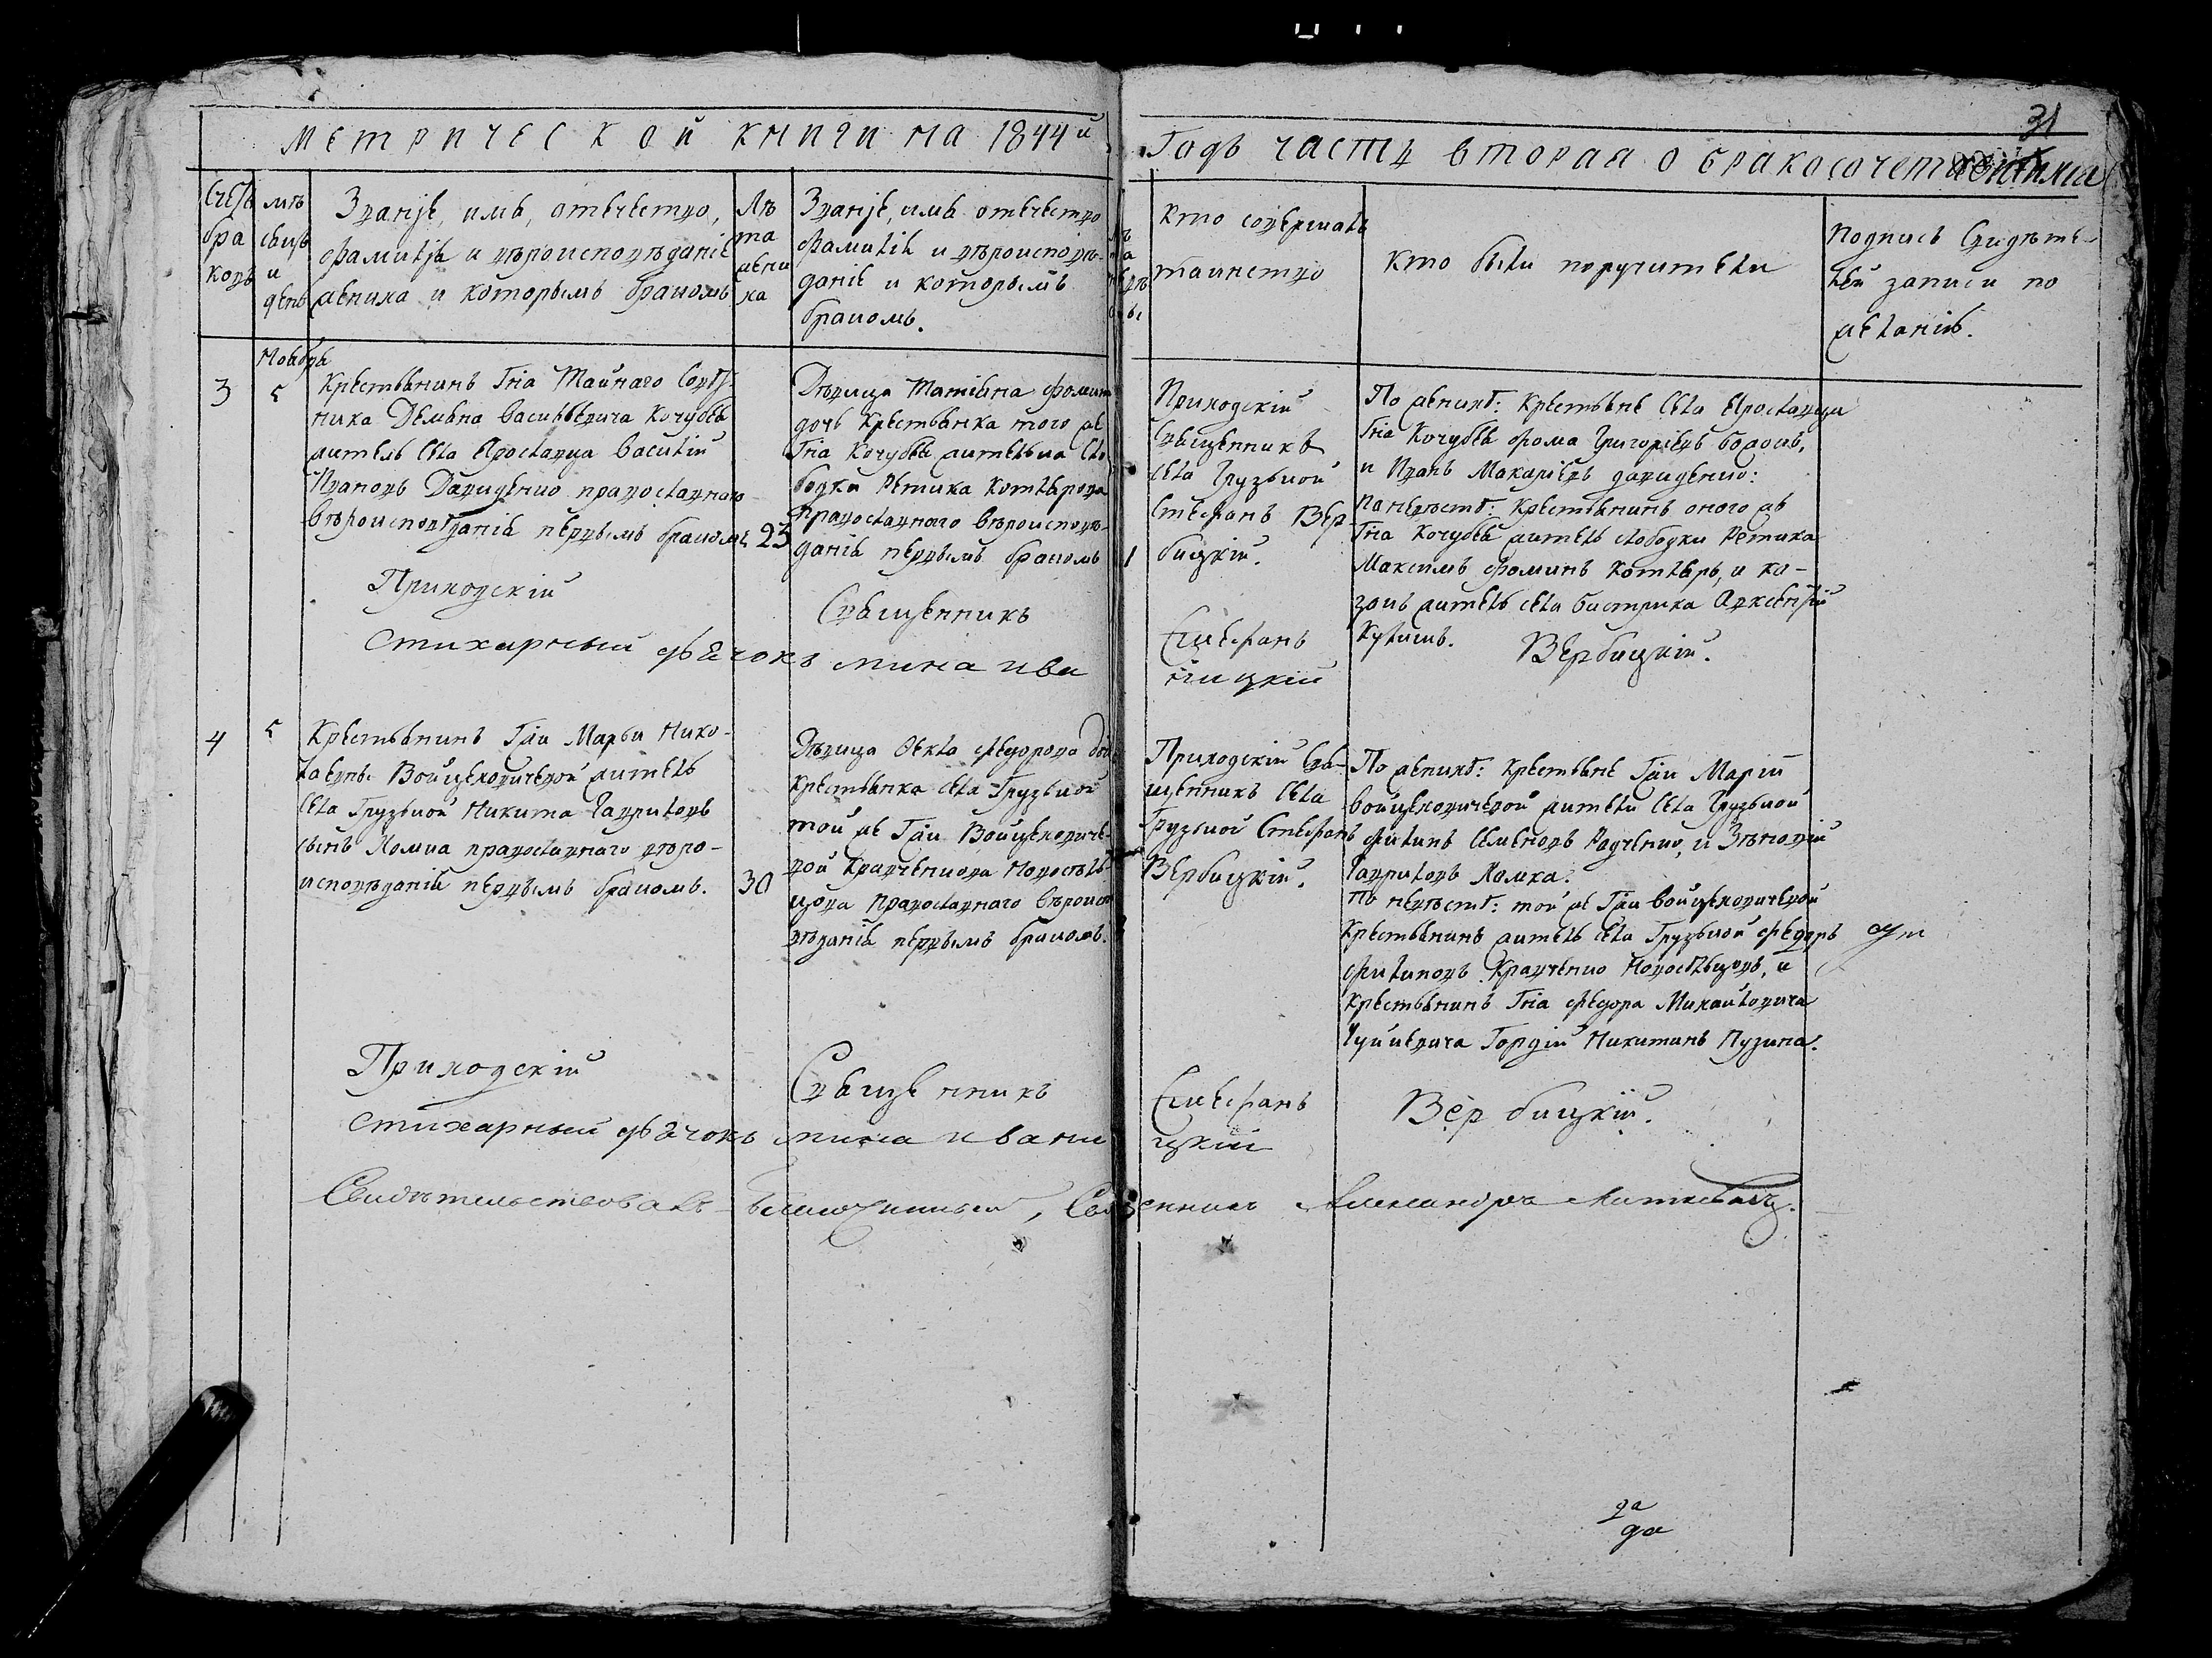 31
Метрической книги на 1844й
Годъ часть вторая о бракосочетавшихся
Счетъ браковъ
Мѣсяцъ и день
Званіе, имя, отечество,
фамилія и вѣроисповѣданіе
жениха и которымъ бракомъ
Лѣта жениха
Званіе, имя отечество
фамилія и вѣроисповѣ-
даніе и которымъ
бракомъ.
Кто совершалъ
таинство
Кто были поручители
Подпись Свидѣте-
лей записи по
желанію.
Ноября
3
5
Крестьянинъ Гна Тайнаго Совѣт
ника Демьяна Васильевича Кочубея
житель села Ярославца Василій
Ивановъ Давиденко православнаго
вѣроисповѣданія первымъ бракомъ
23
Дѣвица Татіяна Фомина
дочь Крестьянка того же
Гна Кочубея жителька Сло
бодки Ретика Котлярова
Православнаго вѣроисповѣ-
данія первымъ бракомъ
Приходскій
Священникъ
села Грузкой
Стефанъ Вер
бицкій.
По женихѣ: Крестьяне села Ярославца
Гна Кочубея Фома Григоріевъ
и Иванъ Макаріевъ Давиденко:
По невѣстѣ: Крестьянинъ оного же
Гна Кочубея житель слободки Ретика
Максимъ Фоминъ Котляръ, и ка-
закъ житель села Бистрика Арксентій
Кулишъ.
Приходскій Священникъ Стефанъ Вербицкій.
Стихарный дьячокъ Мина Иваницкій
4
5
Крестьянинъ Гжи Марьи Нико-
лаевны Войцеховичевой житель
села Грузкой Никита Гавриловъ
сынъ Хомка православнаго вѣро-
исповѣданія первымъ бракомъ.
30
Дѣвица Фекла Федорова дочь
Крестьянка села Грузкой
той же Гжи Войцеховиче-
вой Кравченкова Новосель-
цова Православнаго вѣроиспо
вѣданія первымъ бракомъ.
Приходскій Свя-
щенникъ села
Грузкой Стефанъ
Вербицкій.
По женихѣ: Крестьяне Гжи Маріи
Войцеховичевой жители села Грузкой
Филипъ Семеновъ Радченко, и Зѣновій
Гавриловъ Хомка.
По невѣстѣ: той же Гжи Войцеховичевой
Крестьянинъ житель села Грузкой Федоръ
Филиповъ Кравченко Новосельцовъ, и
Крестьянинъ Гна Федора Михайловича
Чуйкевича Гордій Никитинъ Пузина.
Приходскій Священникъ Стефанъ Вербицкій.
Стихарный дьячокъ Мина Иваницкій
Свидѣтельствовалъ Благочинный, Священникъ Александръ